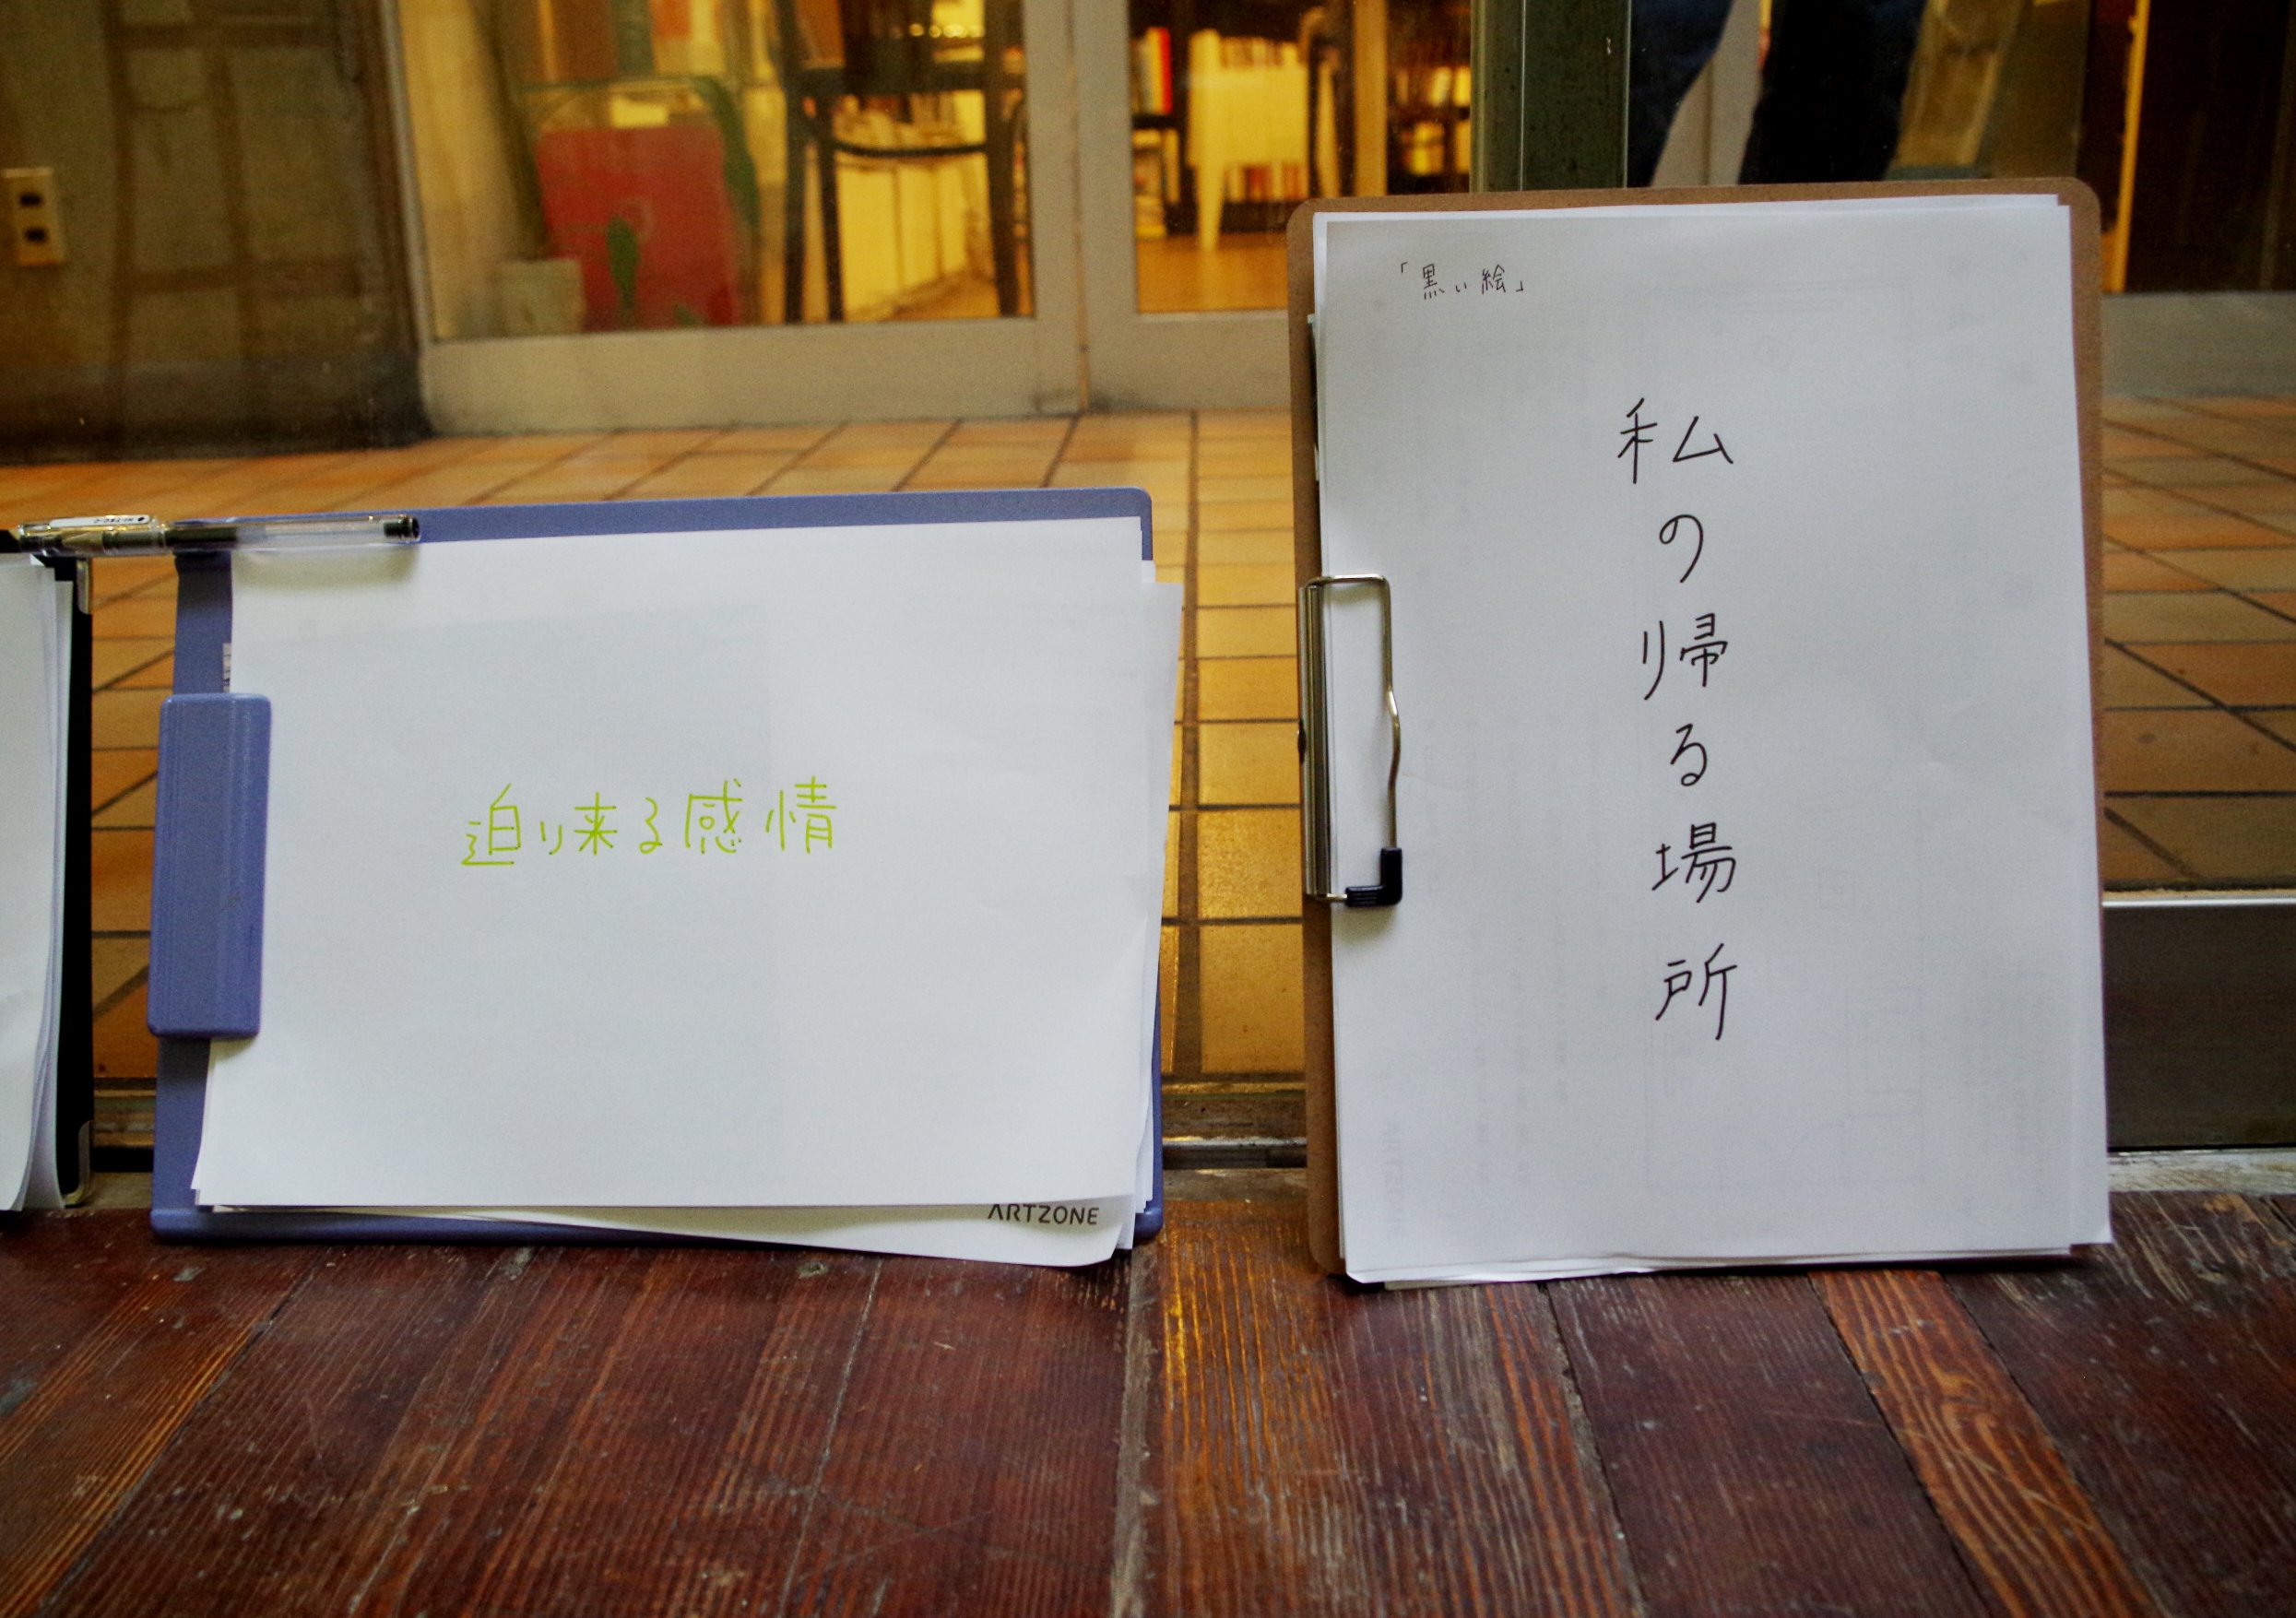 迫り来る感情
ARTZONE
「黒い絵」
私の帰る場所